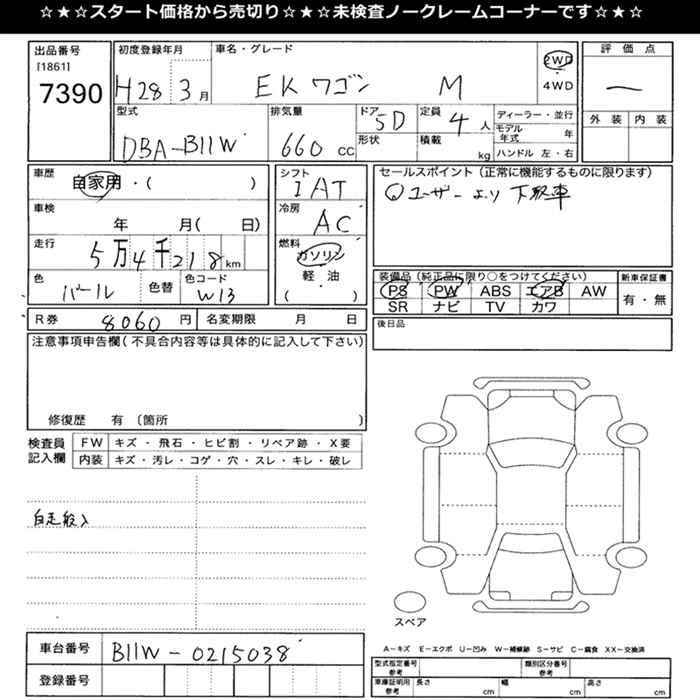 ☆★☆スタート価格から売切り☆★☆未検査ノークレームコーナーです☆★☆
出品番号 初度登録年月 車名・グレード 評価点
[1861]
7390 H28 3月 EKワゴン M 2WD 4WD ー
型式 排気量 ドア 5D 定員 4人 ディーラー・並行 外装 内装
DBA-B11W 660cc 形状 積載 kg モデル年式 年
ハンドル 左・右
車歴 自家用・( ) シフト セールスポイント(正常に機能するものに限ります)
1AT ①ユーザーより下取車
車検 年 月( 日) 冷房 AC
走行 5万4千218km 燃料 ガソリン
軽・油
( )
色 パール 色替 色コード W13
装備品(純正品に限り○をつけてください) 新車保証書
PS PW ABS エアB AW 有・無
SR ナビ TV カワ
R券 8060円 名変期限 月 日 後日品
注意事項申告欄(不具合内容等は具体的に記入して下さい)
修復歴 有〔箇所 〕
検査員記入欄 FW キズ・飛石・ヒビ割・リペア跡・X要
内装 キズ・汚レ・コゲ・穴・スレ・キレ・破レ
自走搬入
スペア
車台番号 B11W-0215038
A-キズ E-エクボ U-凹み W-補修跡 S-サビ C-腐食 XX-交換済
型式指定番号 参考 類別区分番号 参考
登録番号 車庫証明用 参考 長さ cm 幅 cm 高さ cm